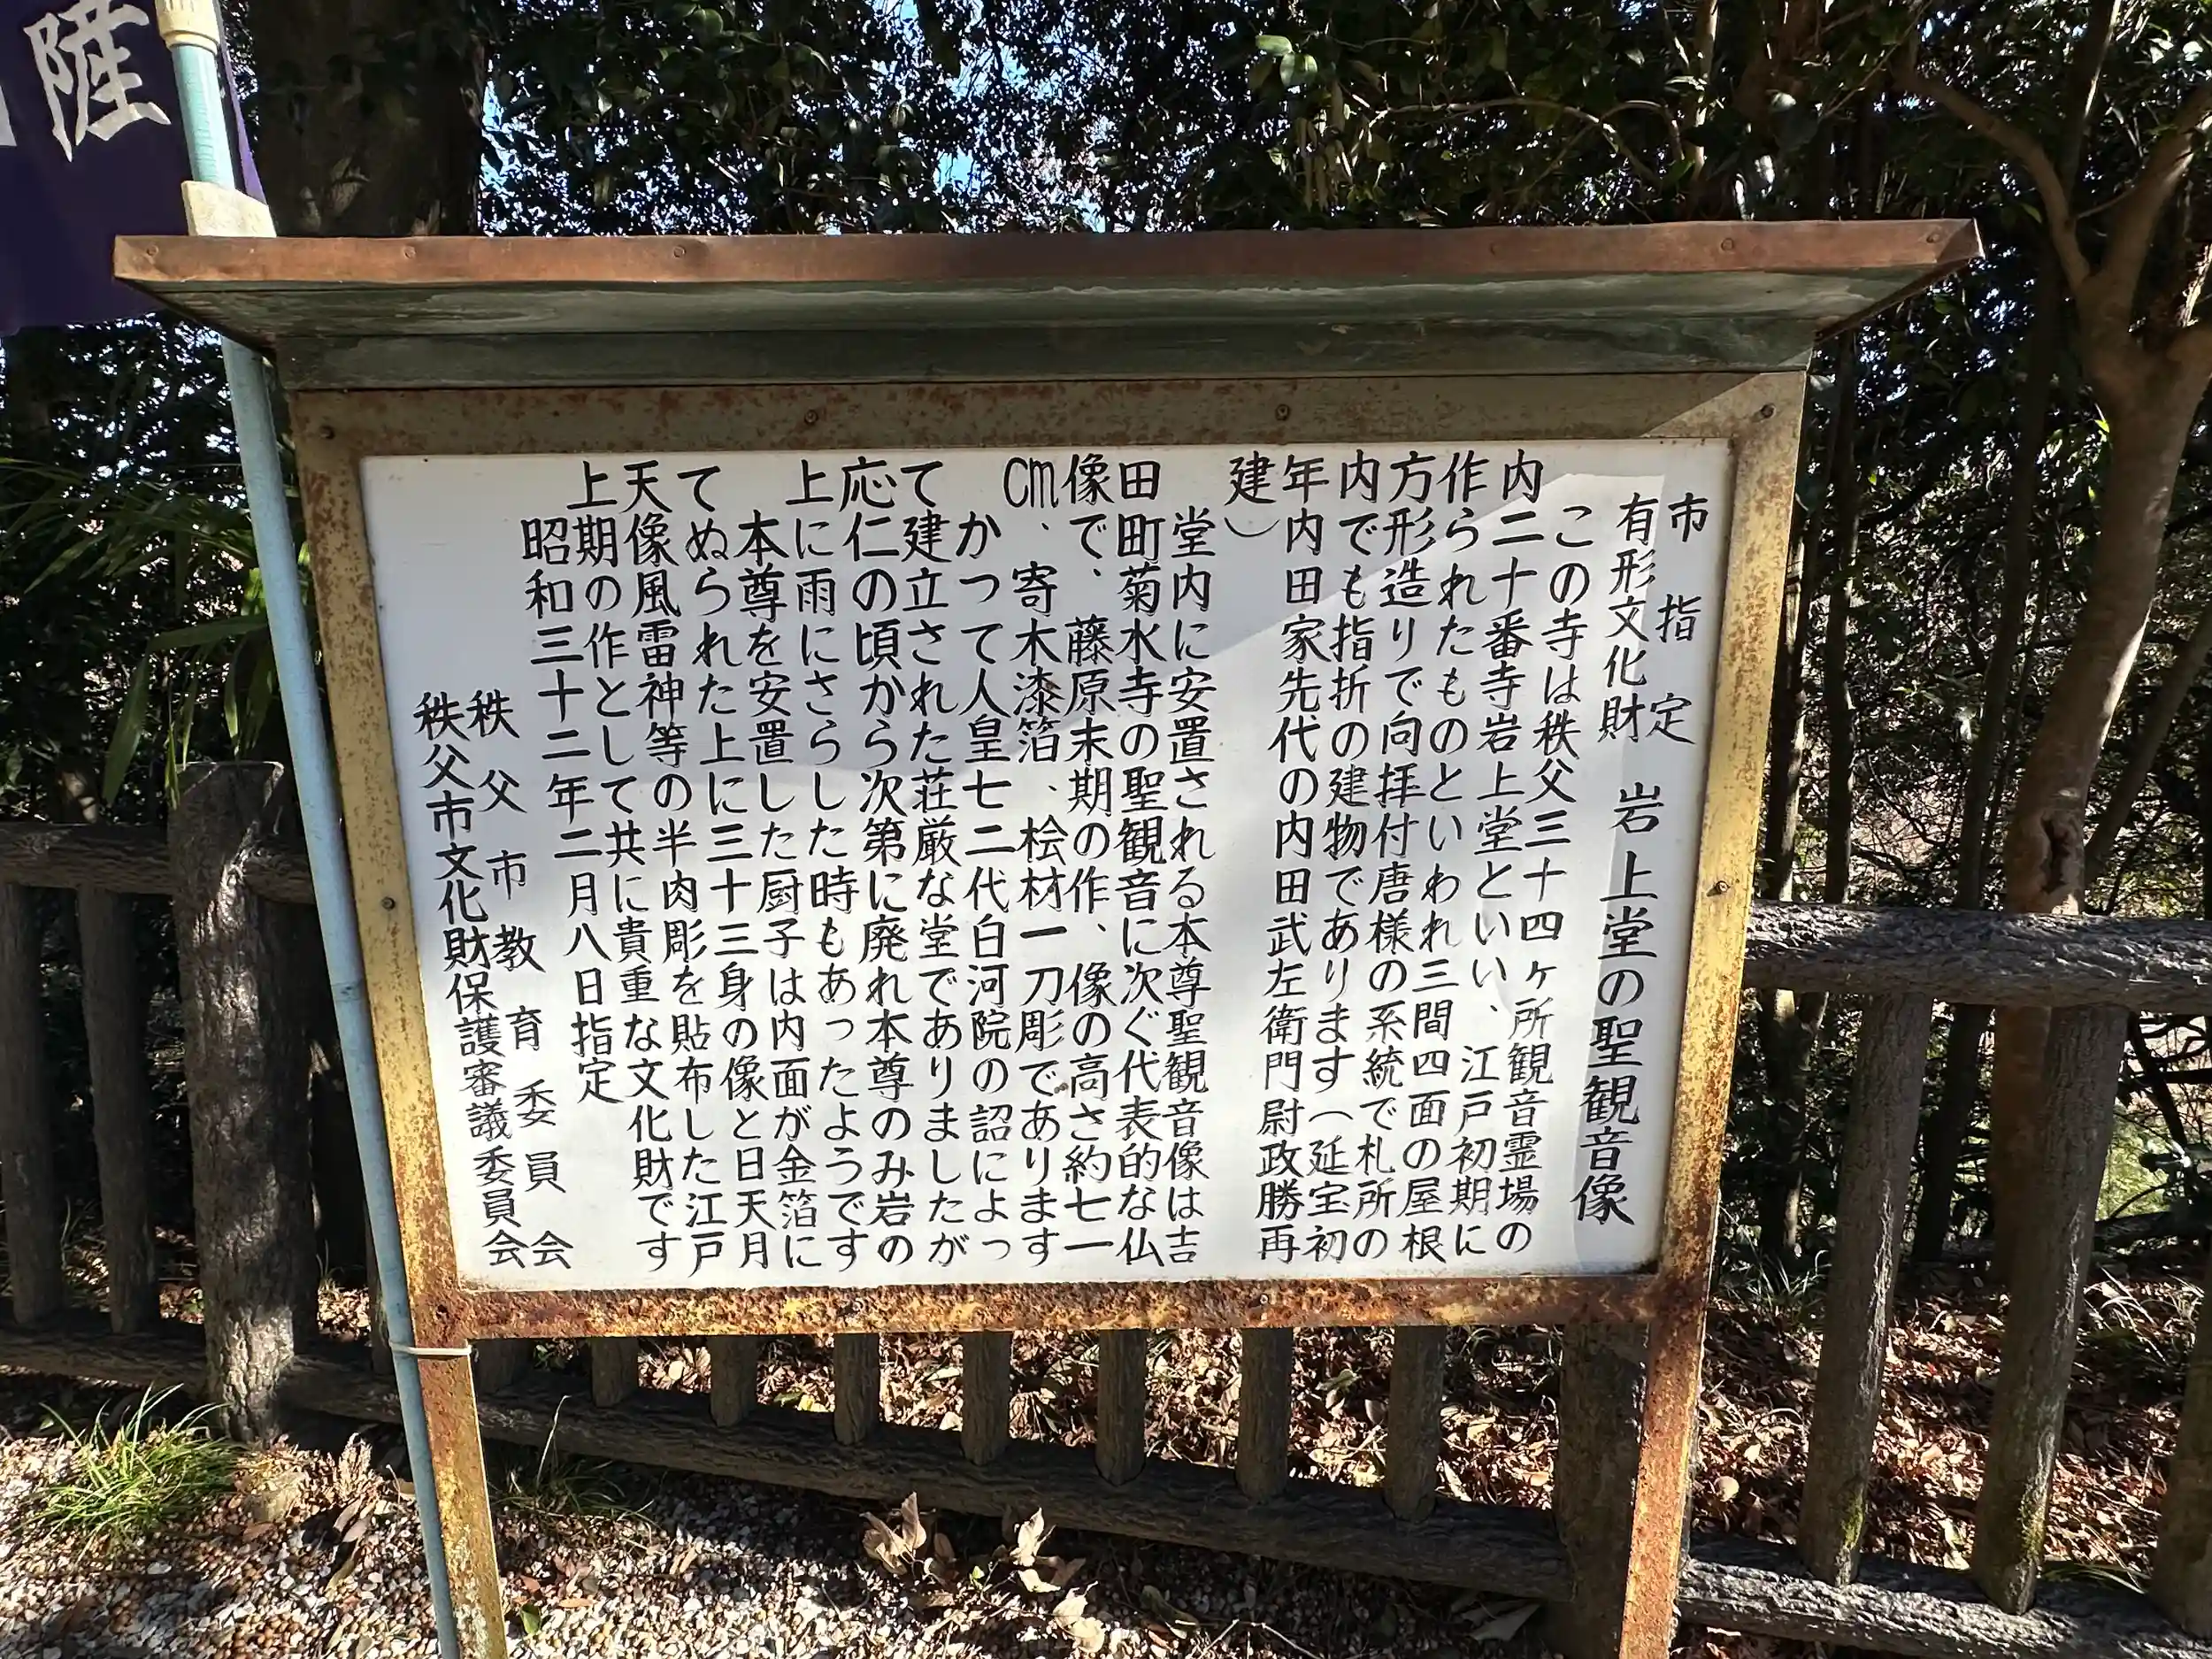 市指定
有形文化財 岩上堂の聖観音像
この寺は秩父三十四ヶ所観音霊場の
内二十番寺岩上堂といい、江戸初期に
作られたものといわれ三間四面の屋根
方形造りで向拝付唐様の系統で札所の
内でも指折の建物であります(延宝初
年内田家先代の内田武左衛門尉政勝再
建)
堂内に安置される本尊聖観音像は吉
田町菊水寺の聖観音に次ぐ代表的な仏
像で、藤原末期の作、像の高さ約七一
cm、寄木漆箔、桧材一刀彫であります
かつて人皇七二代白河院の詔によっ
て建立された荘厳な堂でありましたが
応仁の頃から次第に廃れ本尊のみ岩の
上に雨にさらした時もあったようです
本尊を安置した厨子は内面が金箔に
てぬられた上に三十三身の像と日天月
天像風雷神等の半肉彫を貼布した江戸
上期の作として共に貴重な文化財です
昭和三十二年二月八日指定
秩父市教育委員会
秩父市文化財保護審議委員会
薩